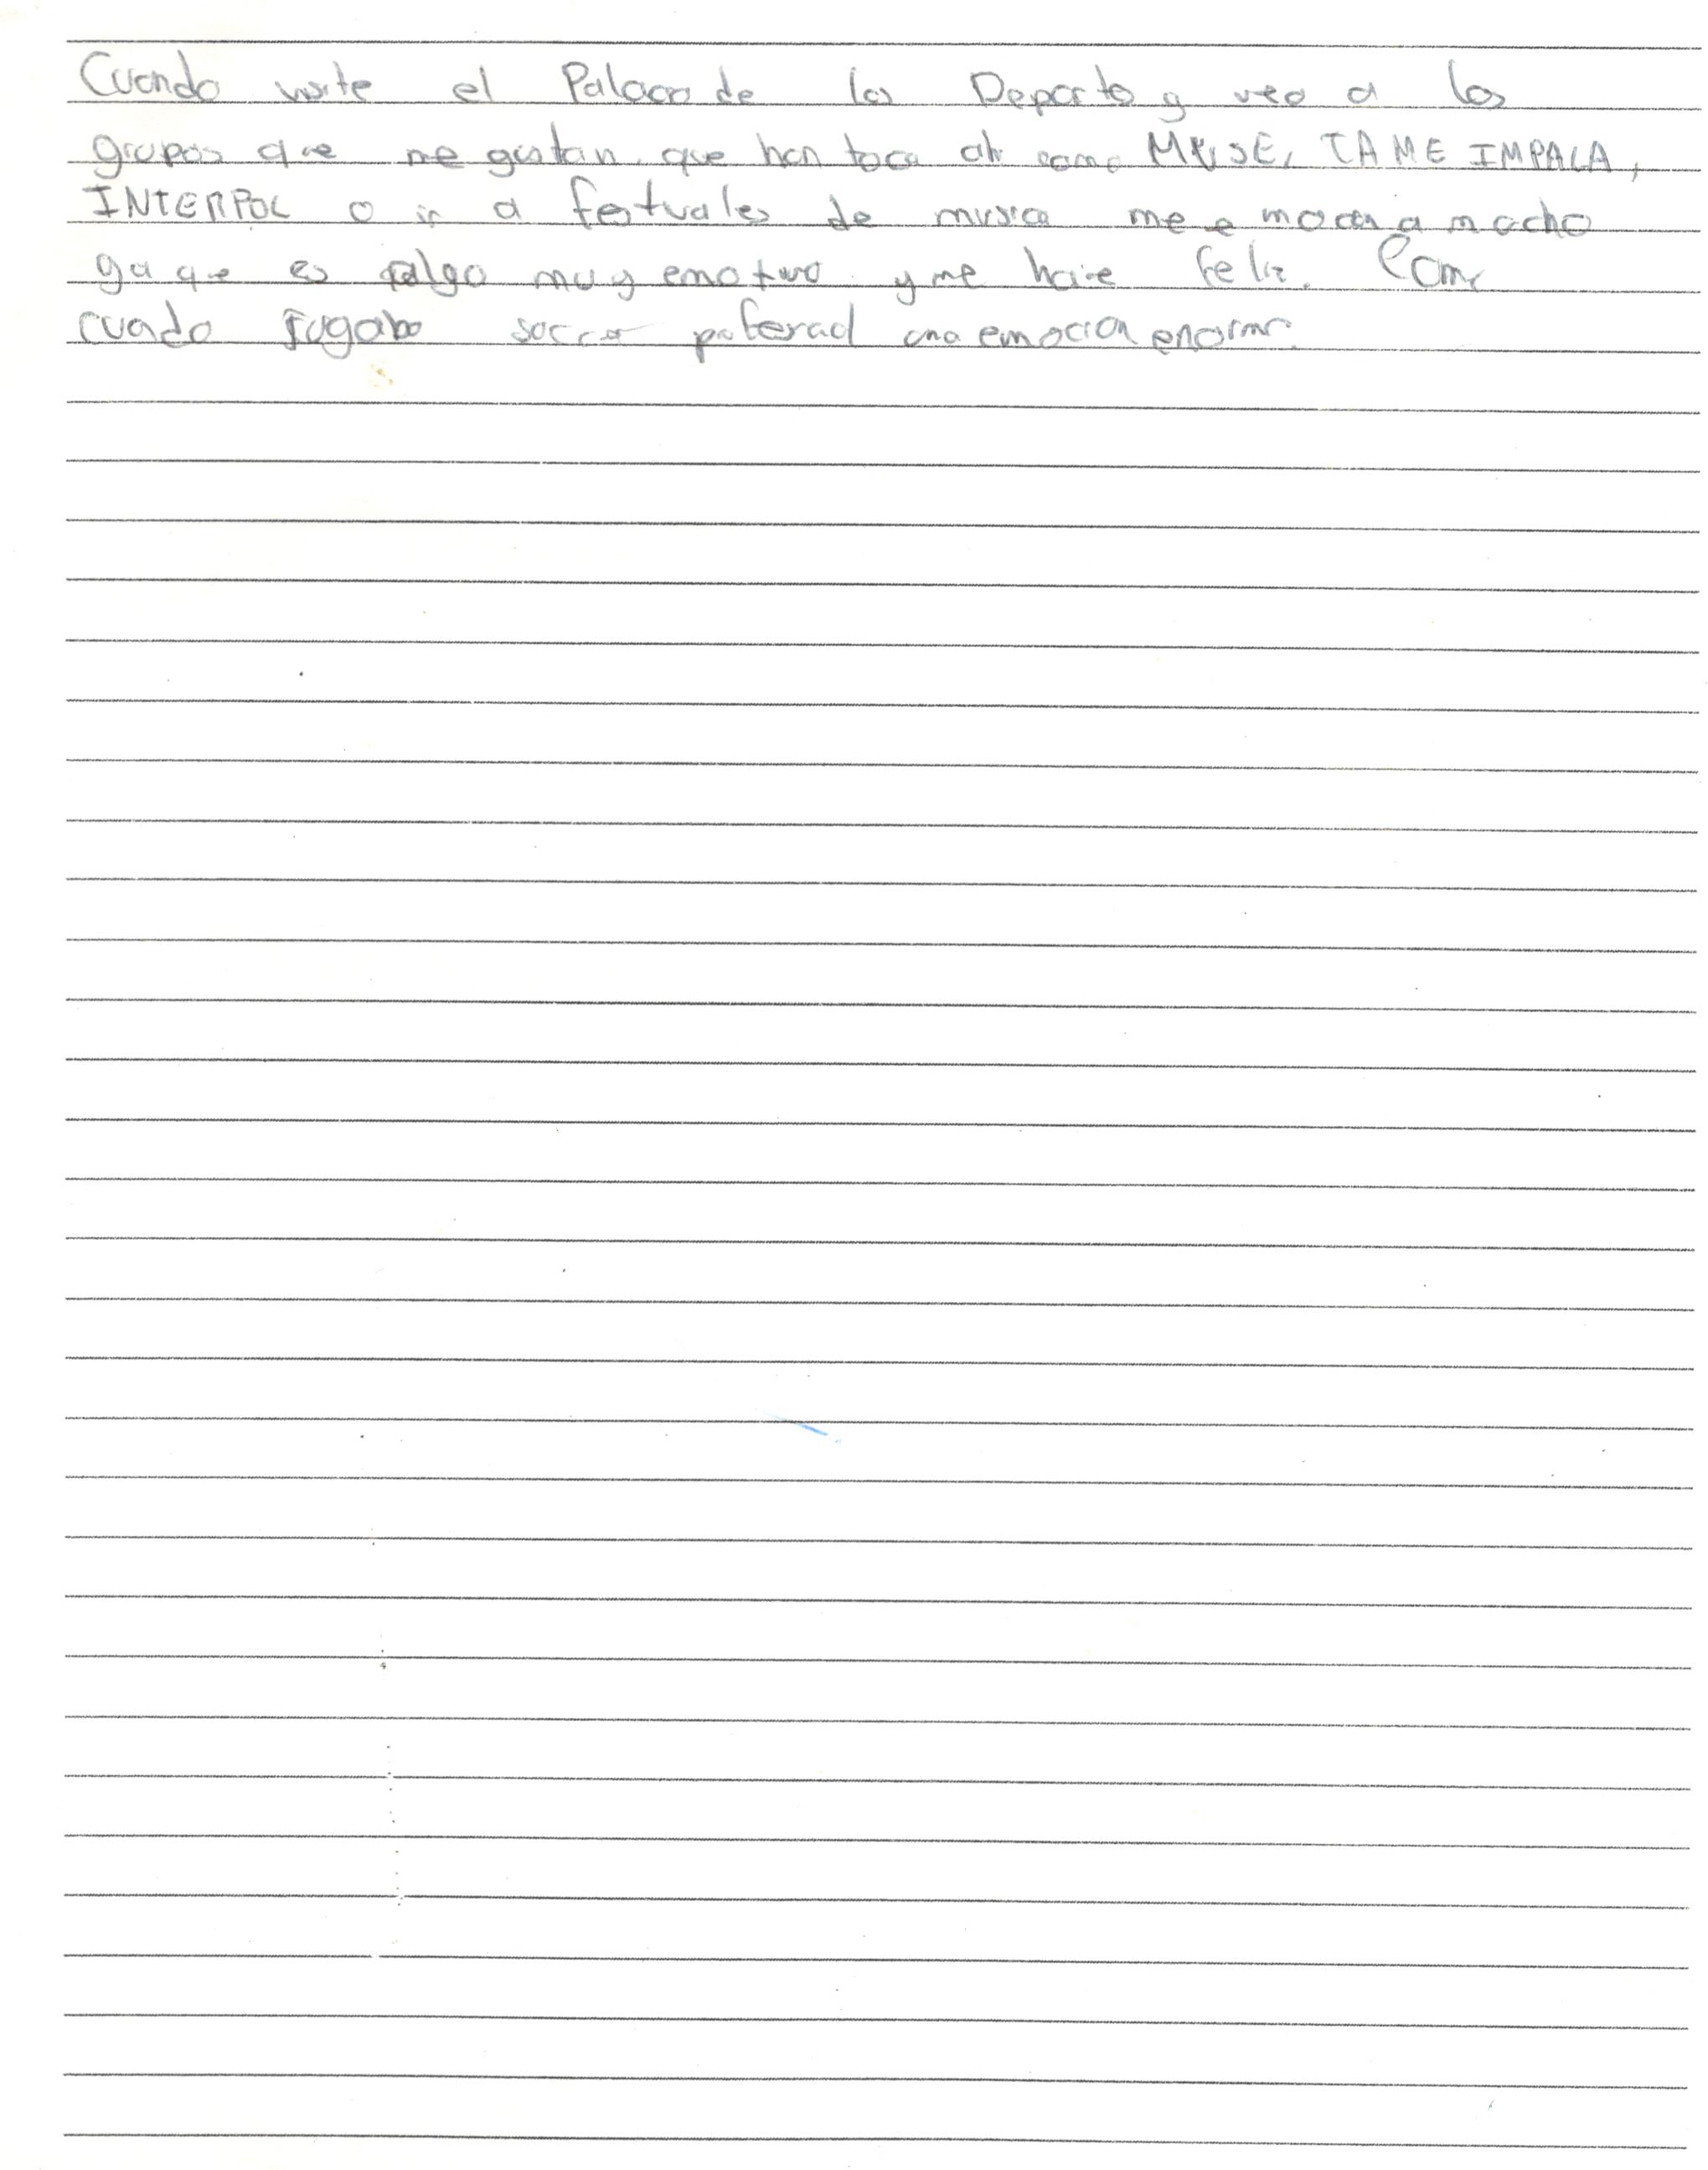 Cuando visite el Palacio de los Deporto y veo a los
grupos que me gustan que han toca ahi como MUSE, TAME IMPALA,
INTERPOL o ir a festivales de musica me emociona mucho
ya que es algo muy emotivo y me hace feliz. Como
cuado jugaba soccer una emocion enorme.